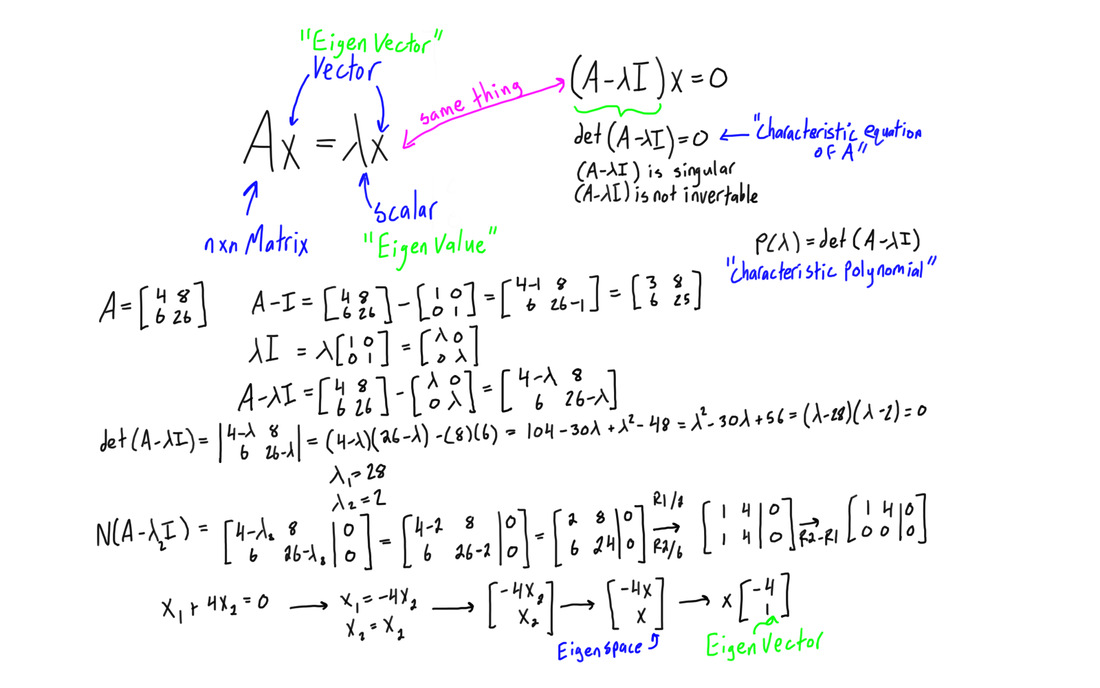 "Eigen Vector"
Vector
Ax = λx
same thing
(A-λI)x = 0
det(A-λI) = 0 ← "Characteristic equation
OF A"
(A-λI) is singular
(A-λI) is not invertable
nxn Matrix
Scalar
"Eigen Value"
P(λ) = det(A-λI)
"Characteristic Polynomial"
A = [4 8; 6 26] A-I = [4 8; 6 26] - [1 0; 0 1] = [4-1 8; 6 26-1] = [3 8; 6 25]
λI = λ[1 0; 0 1] = [λ 0; 0 λ]
A-λI = [4 8; 6 26] - [λ 0; 0 λ] = [4-λ 8; 6 26-λ]
det(A-λI) = |4-λ 8; 6 26-λ| = (4-λ)(26-λ) - (8)(6) = 104 - 30λ + λ² - 48 = λ² - 30λ + 56 = (λ-28)(λ-2) = 0
λ₁ = 28
λ₂ = 2
N(A-λ₂I) = [4-λ₂ 8 | 0; 6 26-λ₂ | 0] = [4-2 8 | 0; 6 26-2 | 0] = [2 8 | 0; 6 24 | 0] R1/2 → R2/6 [1 4 | 0; 1 4 | 0] → R2-R1 [1 4 | 0; 0 0 | 0]
x₁ + 4x₂ = 0 → x₁ = -4x₂ x₂ = x₂ → [-4x₂; x₂] → [-4x; x] → x[-4; 1]
Eigenspace
Eigen Vector